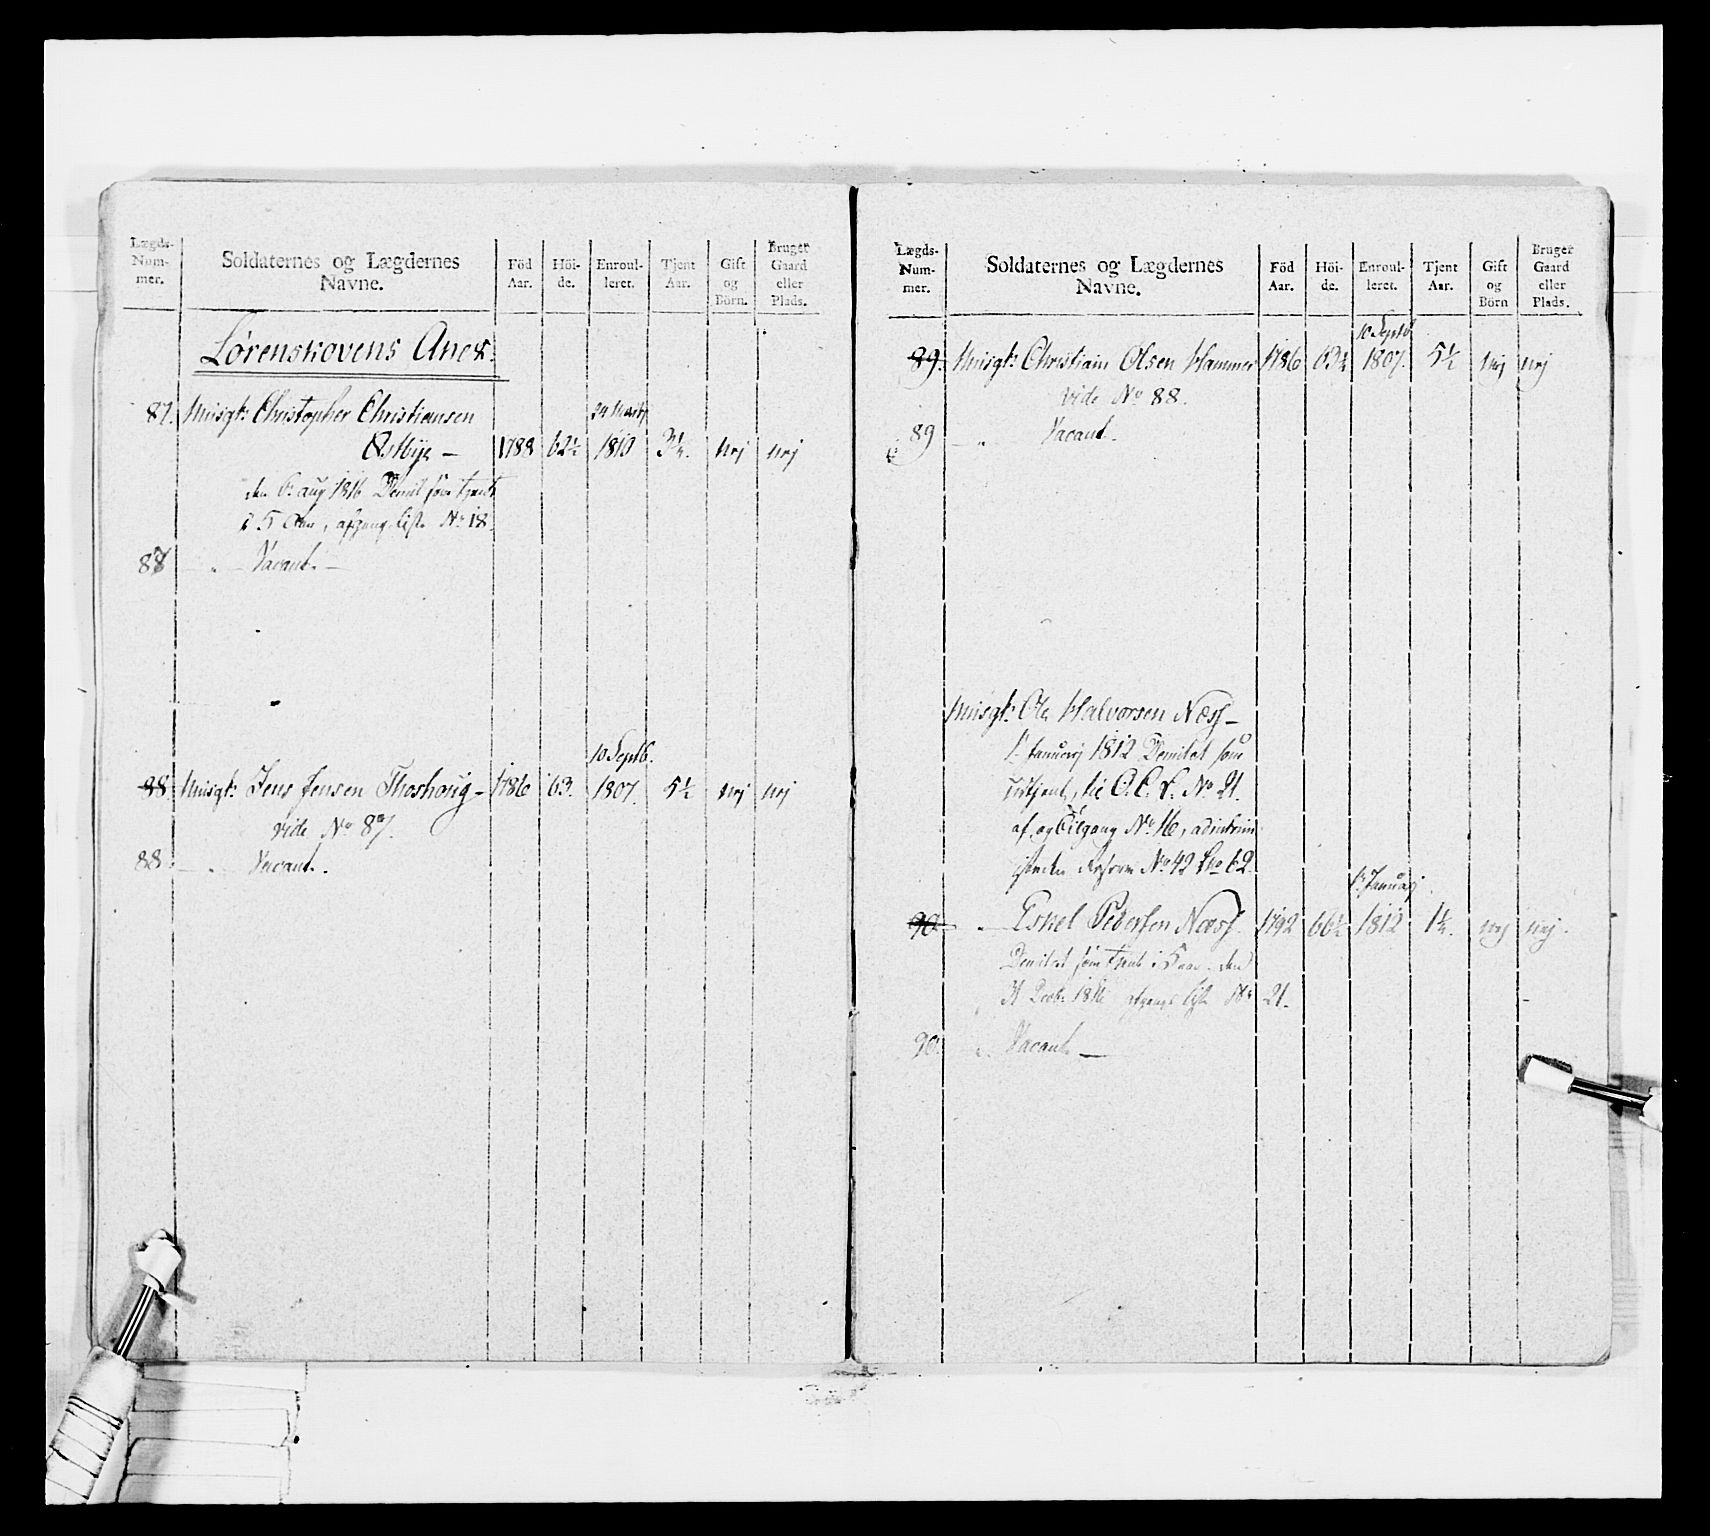 Lægds-Num-mer. Soldaternes og Lægdernes Navne. Föd Aar. Höi-de. Enroul-leret. Tjent Aar. Gift og Börn. Bruger Gaard eller Plads.
Lørenskovens Anex.
87. Musqt: Christopher Christiansen
24 Martj
Østbye — 1788 62½ 1810 3¼. nej nej
den 6: aug 1816 Demit som tjent
i 5 Aar, afgangs liste No 18.
87 — " — Vacant. —
10 Septb.
88 Musqt: Jens Jensen Thoshoug — 1786 63. 1807. 5½ nej nej
vide No 87.
88. — " — Vacant.
Lægds-Num-mer. Soldaternes og Lægdernes Navne. Föd Aar. Höi-de. Enroul-leret. Tjent Aar. Gift og Börn Bruger Gaard eller Plads.
10 Septb
89. Musqt: Christian Olsen Hammer 1786 1807. 5½ nej nej
vide No 88.
89 — " Vacant.
Musqt: Ole Halvorsen Næss —
1: Januarj 1812 Demitet som
udtjent, A. C. No 21.
af og Tilgang No 16,
No 42 62.
1: Januarj
90. " — Eskel Pedersen Næss. 1792 66½ 1812 1¼. nej nej.
Demitet som tjent i 5 aar. den
31 Decb: 1816 afgangs liste No 21.
90. " Vacant —